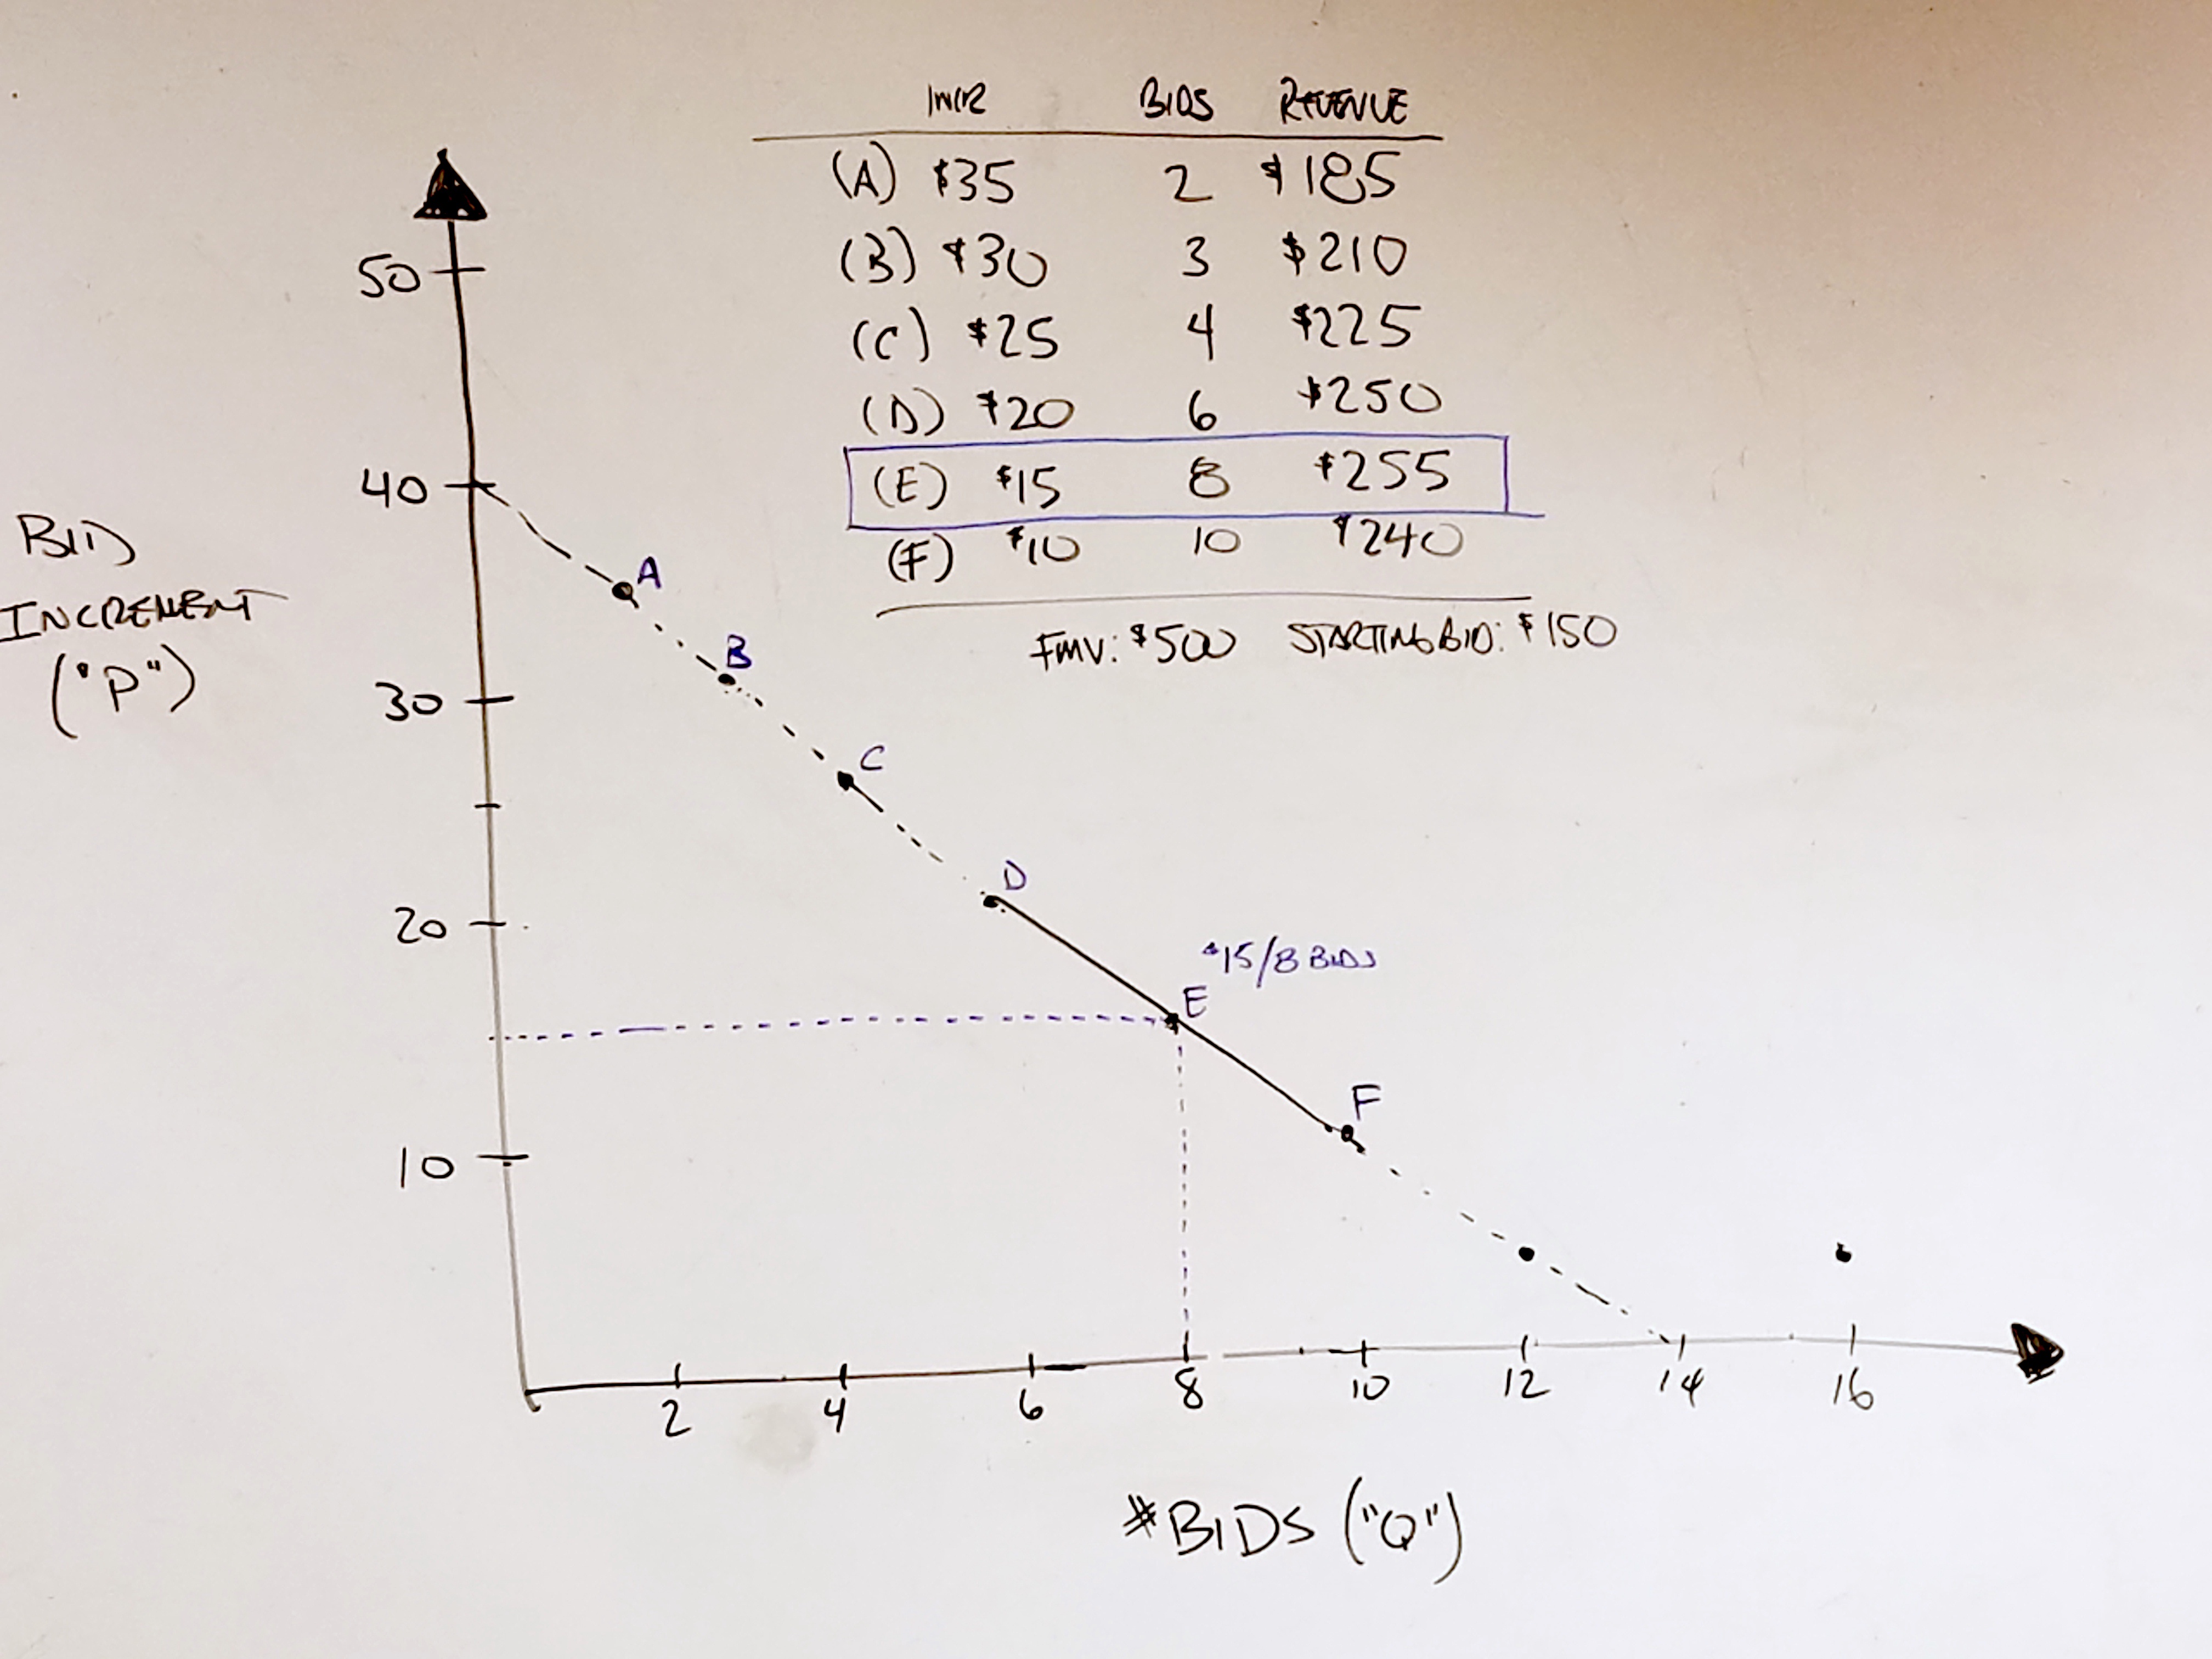 INCR BIDS REVENUE
(A) $35 2 $185
(B) $30 3 $210
(C) $25 4 $225
(D) $20 6 $250
(E) $15 8 $255
(F) $10 10 $240
FMV: $500 STARTING BID: $150
50
40
30
20
10
BID
INCREMENT
("P")
A
B
C
D
$15/8 BIDS
E
F
2 4 6 8 10 12 14 16
#BIDS ("Q")